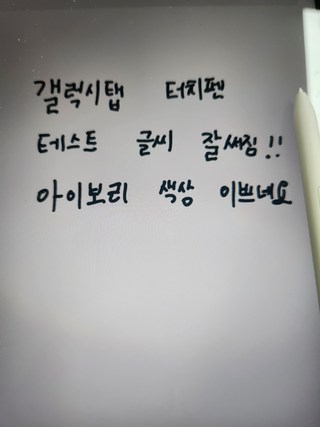 갤럭시탭 터치펜
테스트 글씨 잘써짐!!
아이보리 색상 이쁘네요